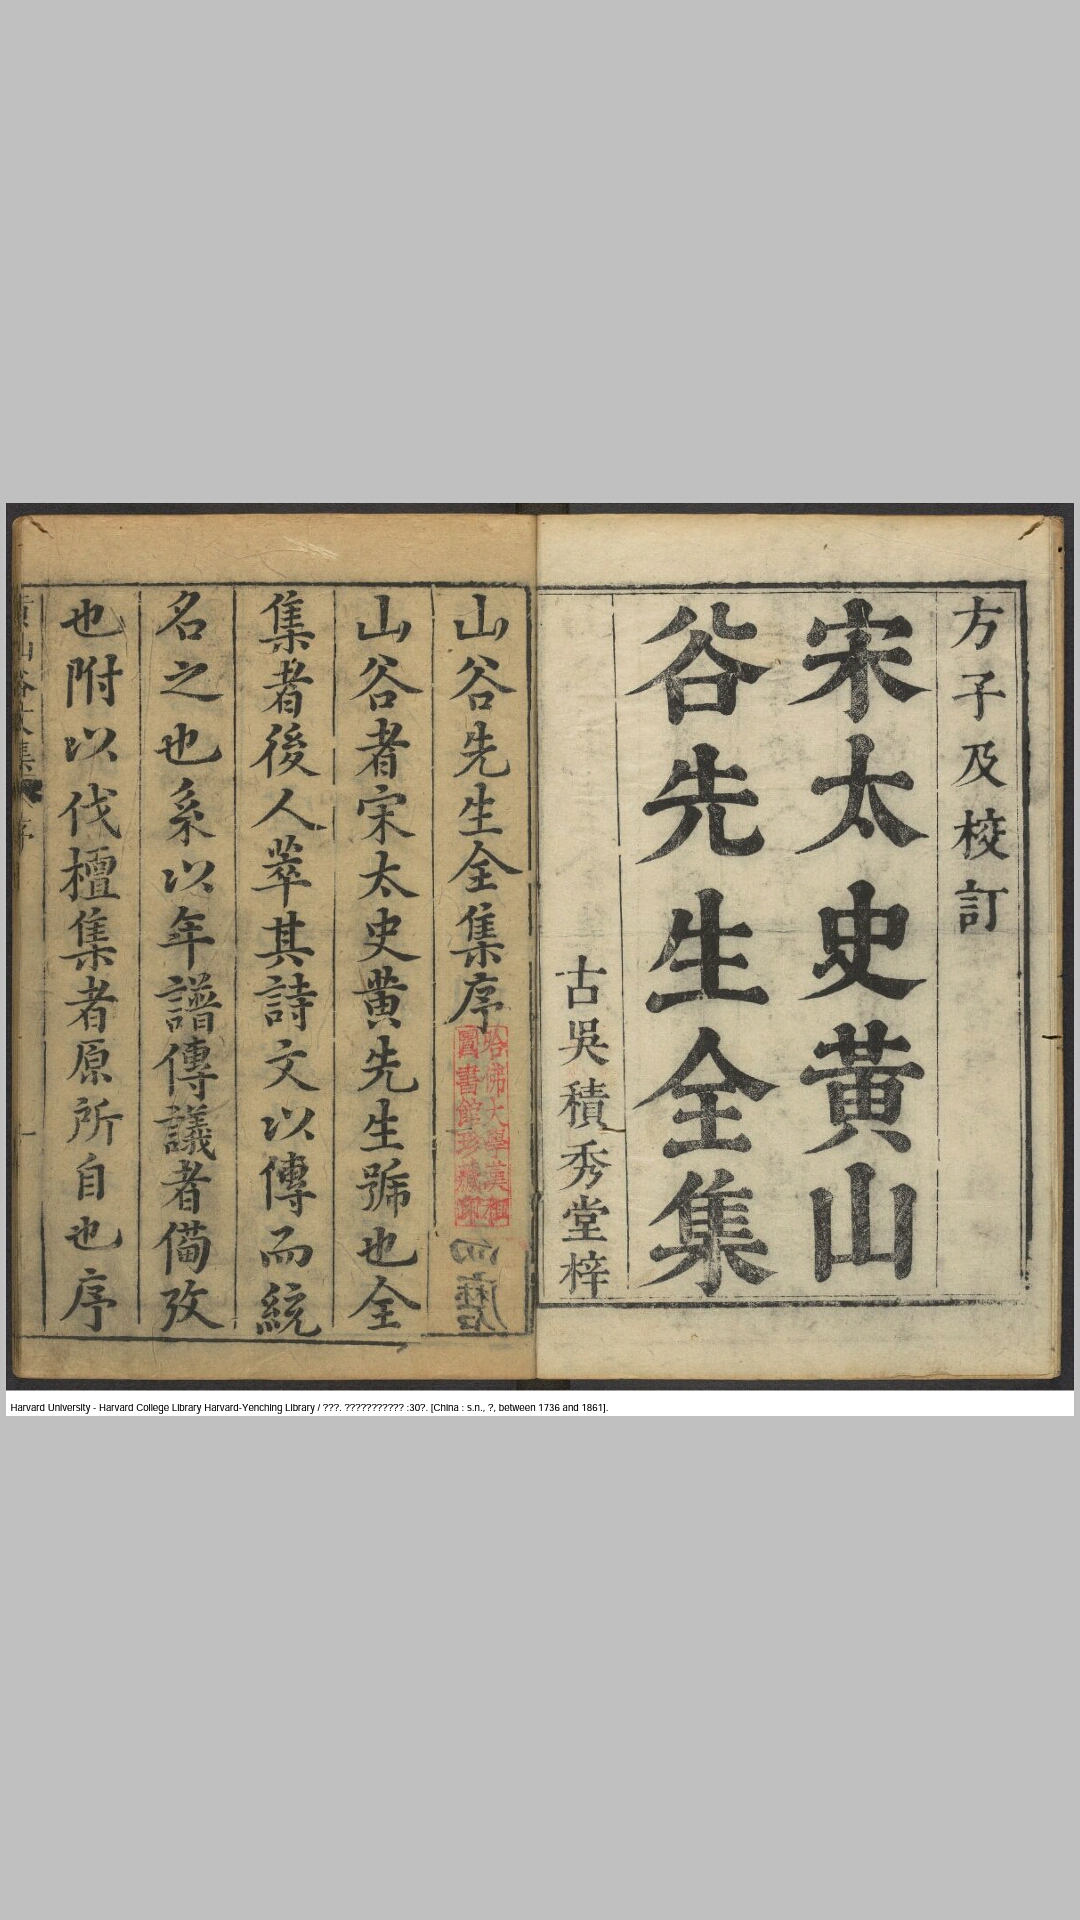 方子及校訂
宋太史黄山
谷先生全集
古吳積秀堂梓
山谷先生全集序
哈佛大學漢和
圖書館珍藏印
山谷者宋太史黄先生號也全
集者後人萃其詩文以傳而統
名之也系以年譜傳議者備攷
也附以伐檀集者原所自也序
Harvard University - Harvard College Library Harvard-Yenching Library / ???. ??????????? :30?. [China : s.n., ?, between 1736 and 1861].